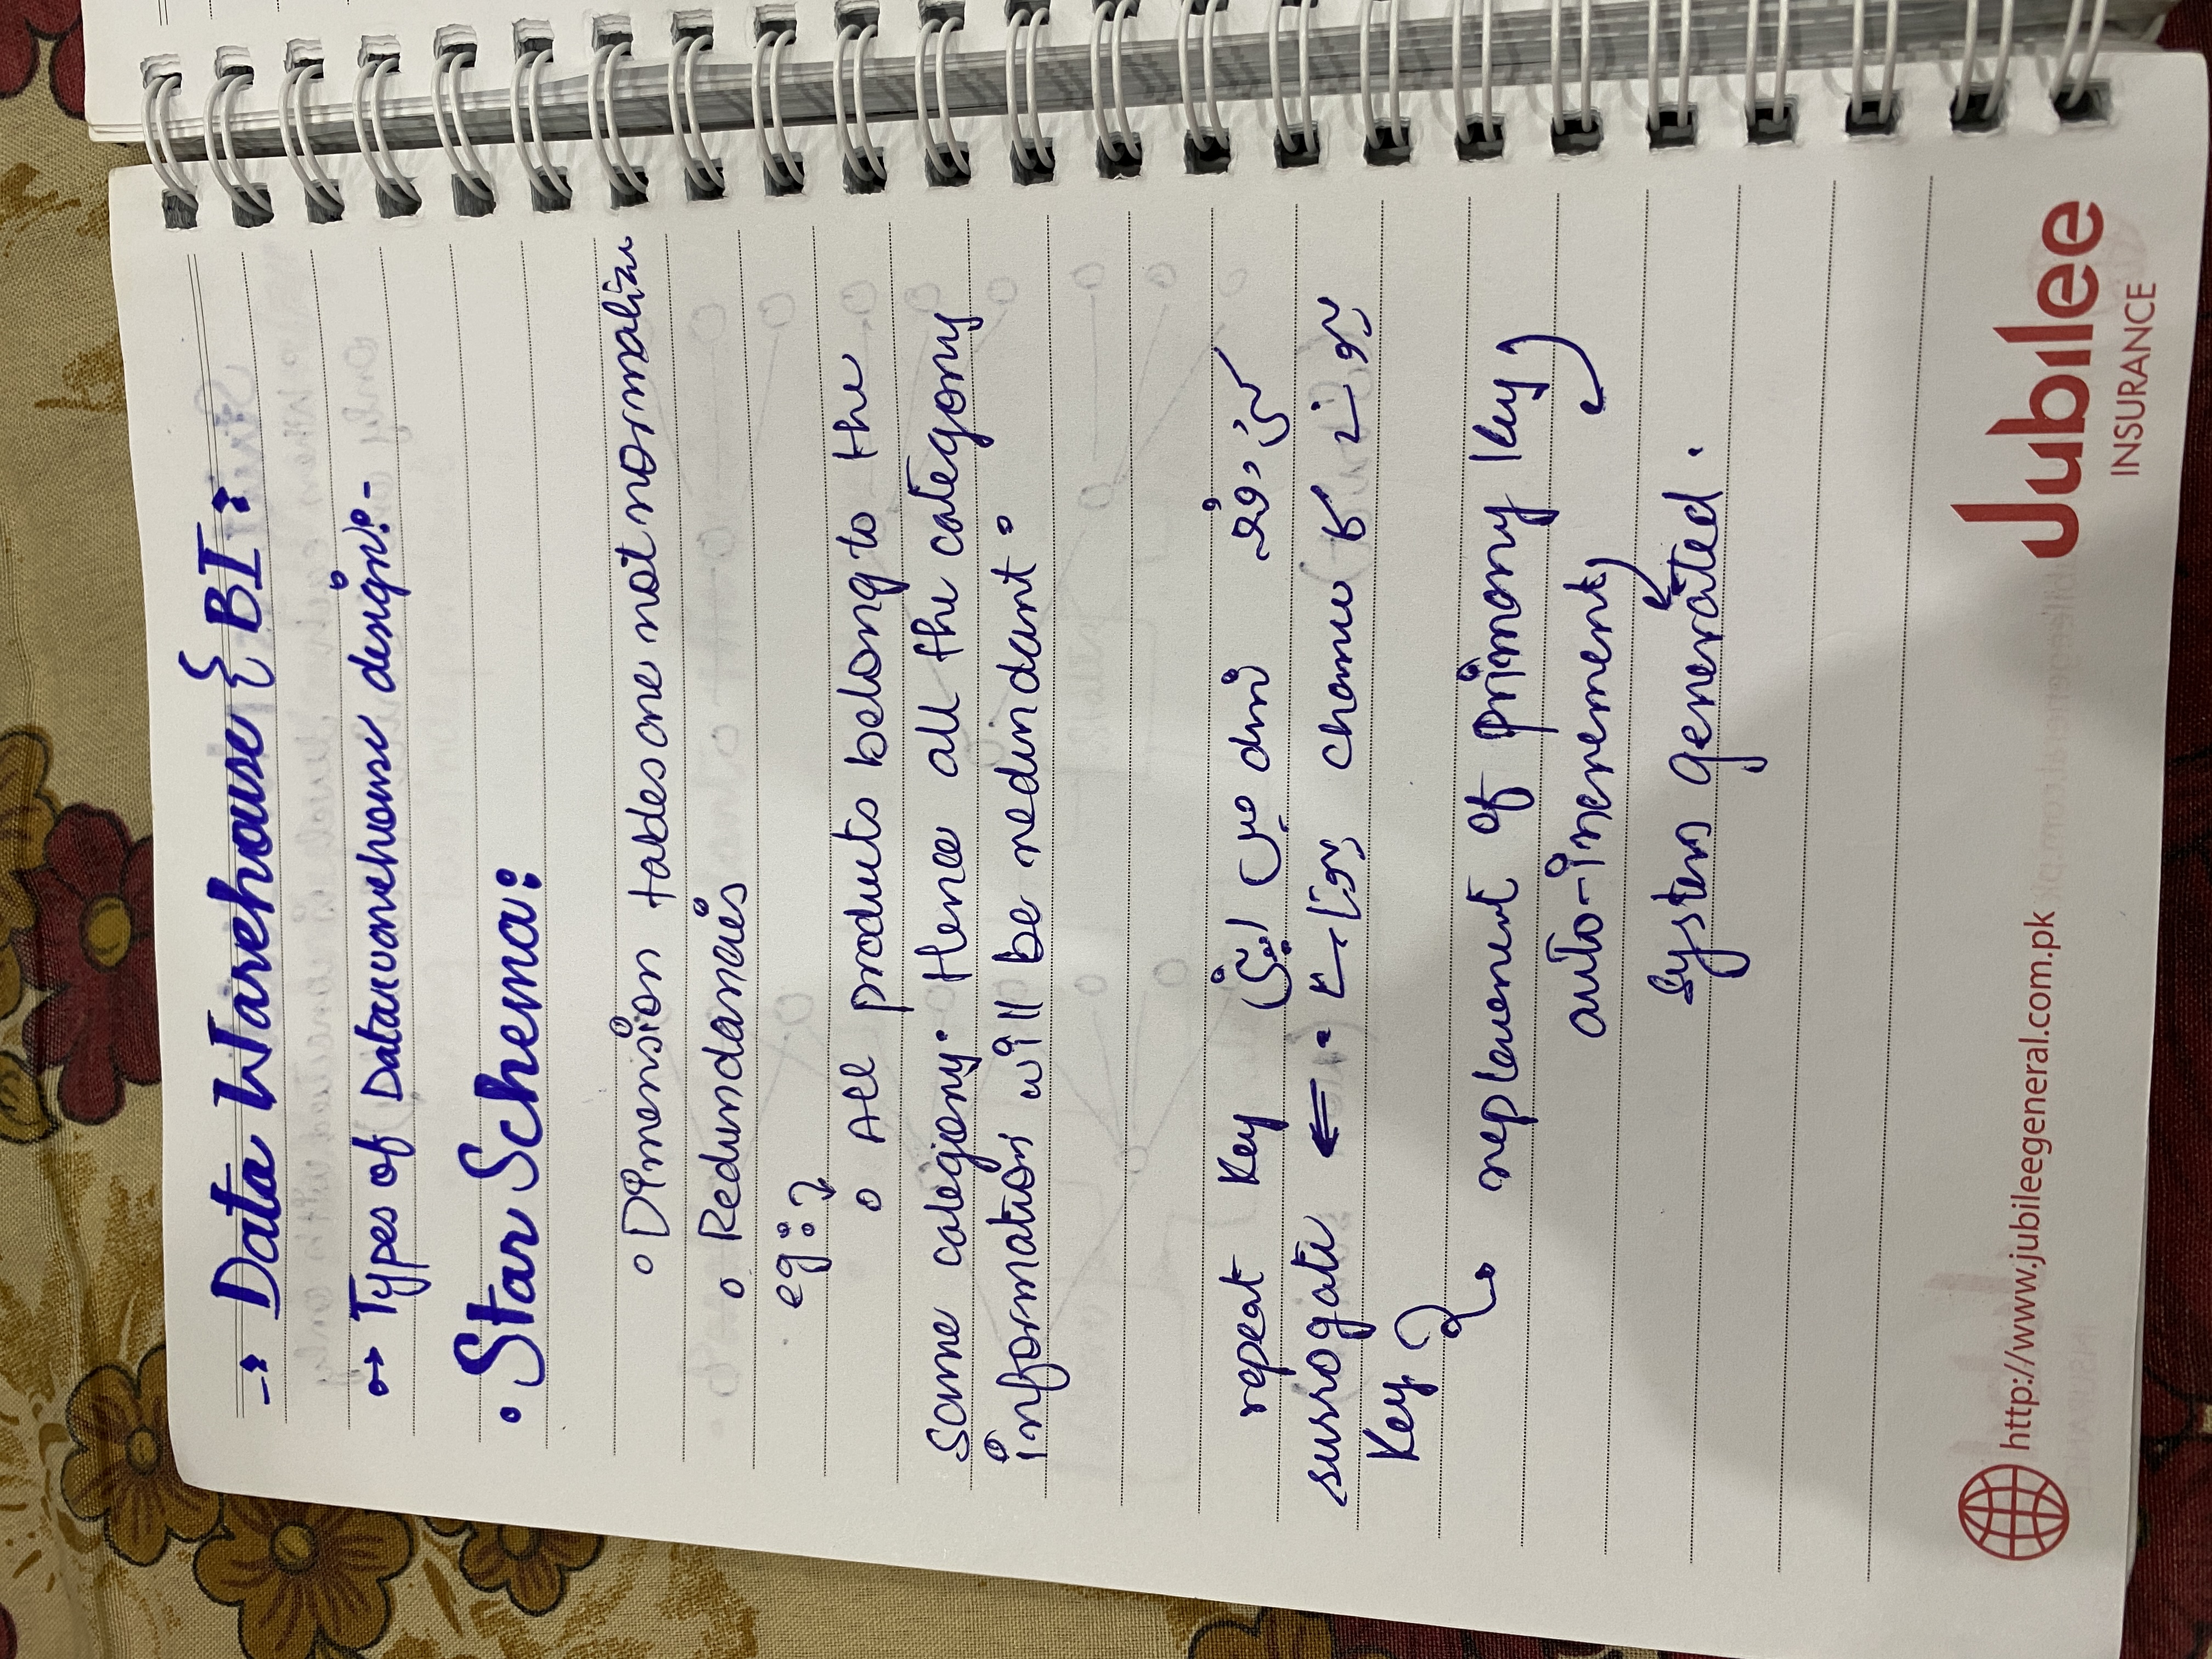 -: Data Warehouse & BI:
→ Types of Datawarehouse design:-
• Star Schema:
◦ Dimension tables are not normalize
◦ Redundancies
eg:
◦ All products belong to the
same category. Hence all the category
information will be redundant.
کئی دفعہ میں اپنی Key repeat
ہونے کا chance ہوتا ہے. ⇐ surrogate
Key
replacement of primary Key
auto-increment
system generated.
http://www.jubileegeneral.com.pk
Jubilee
INSURANCE